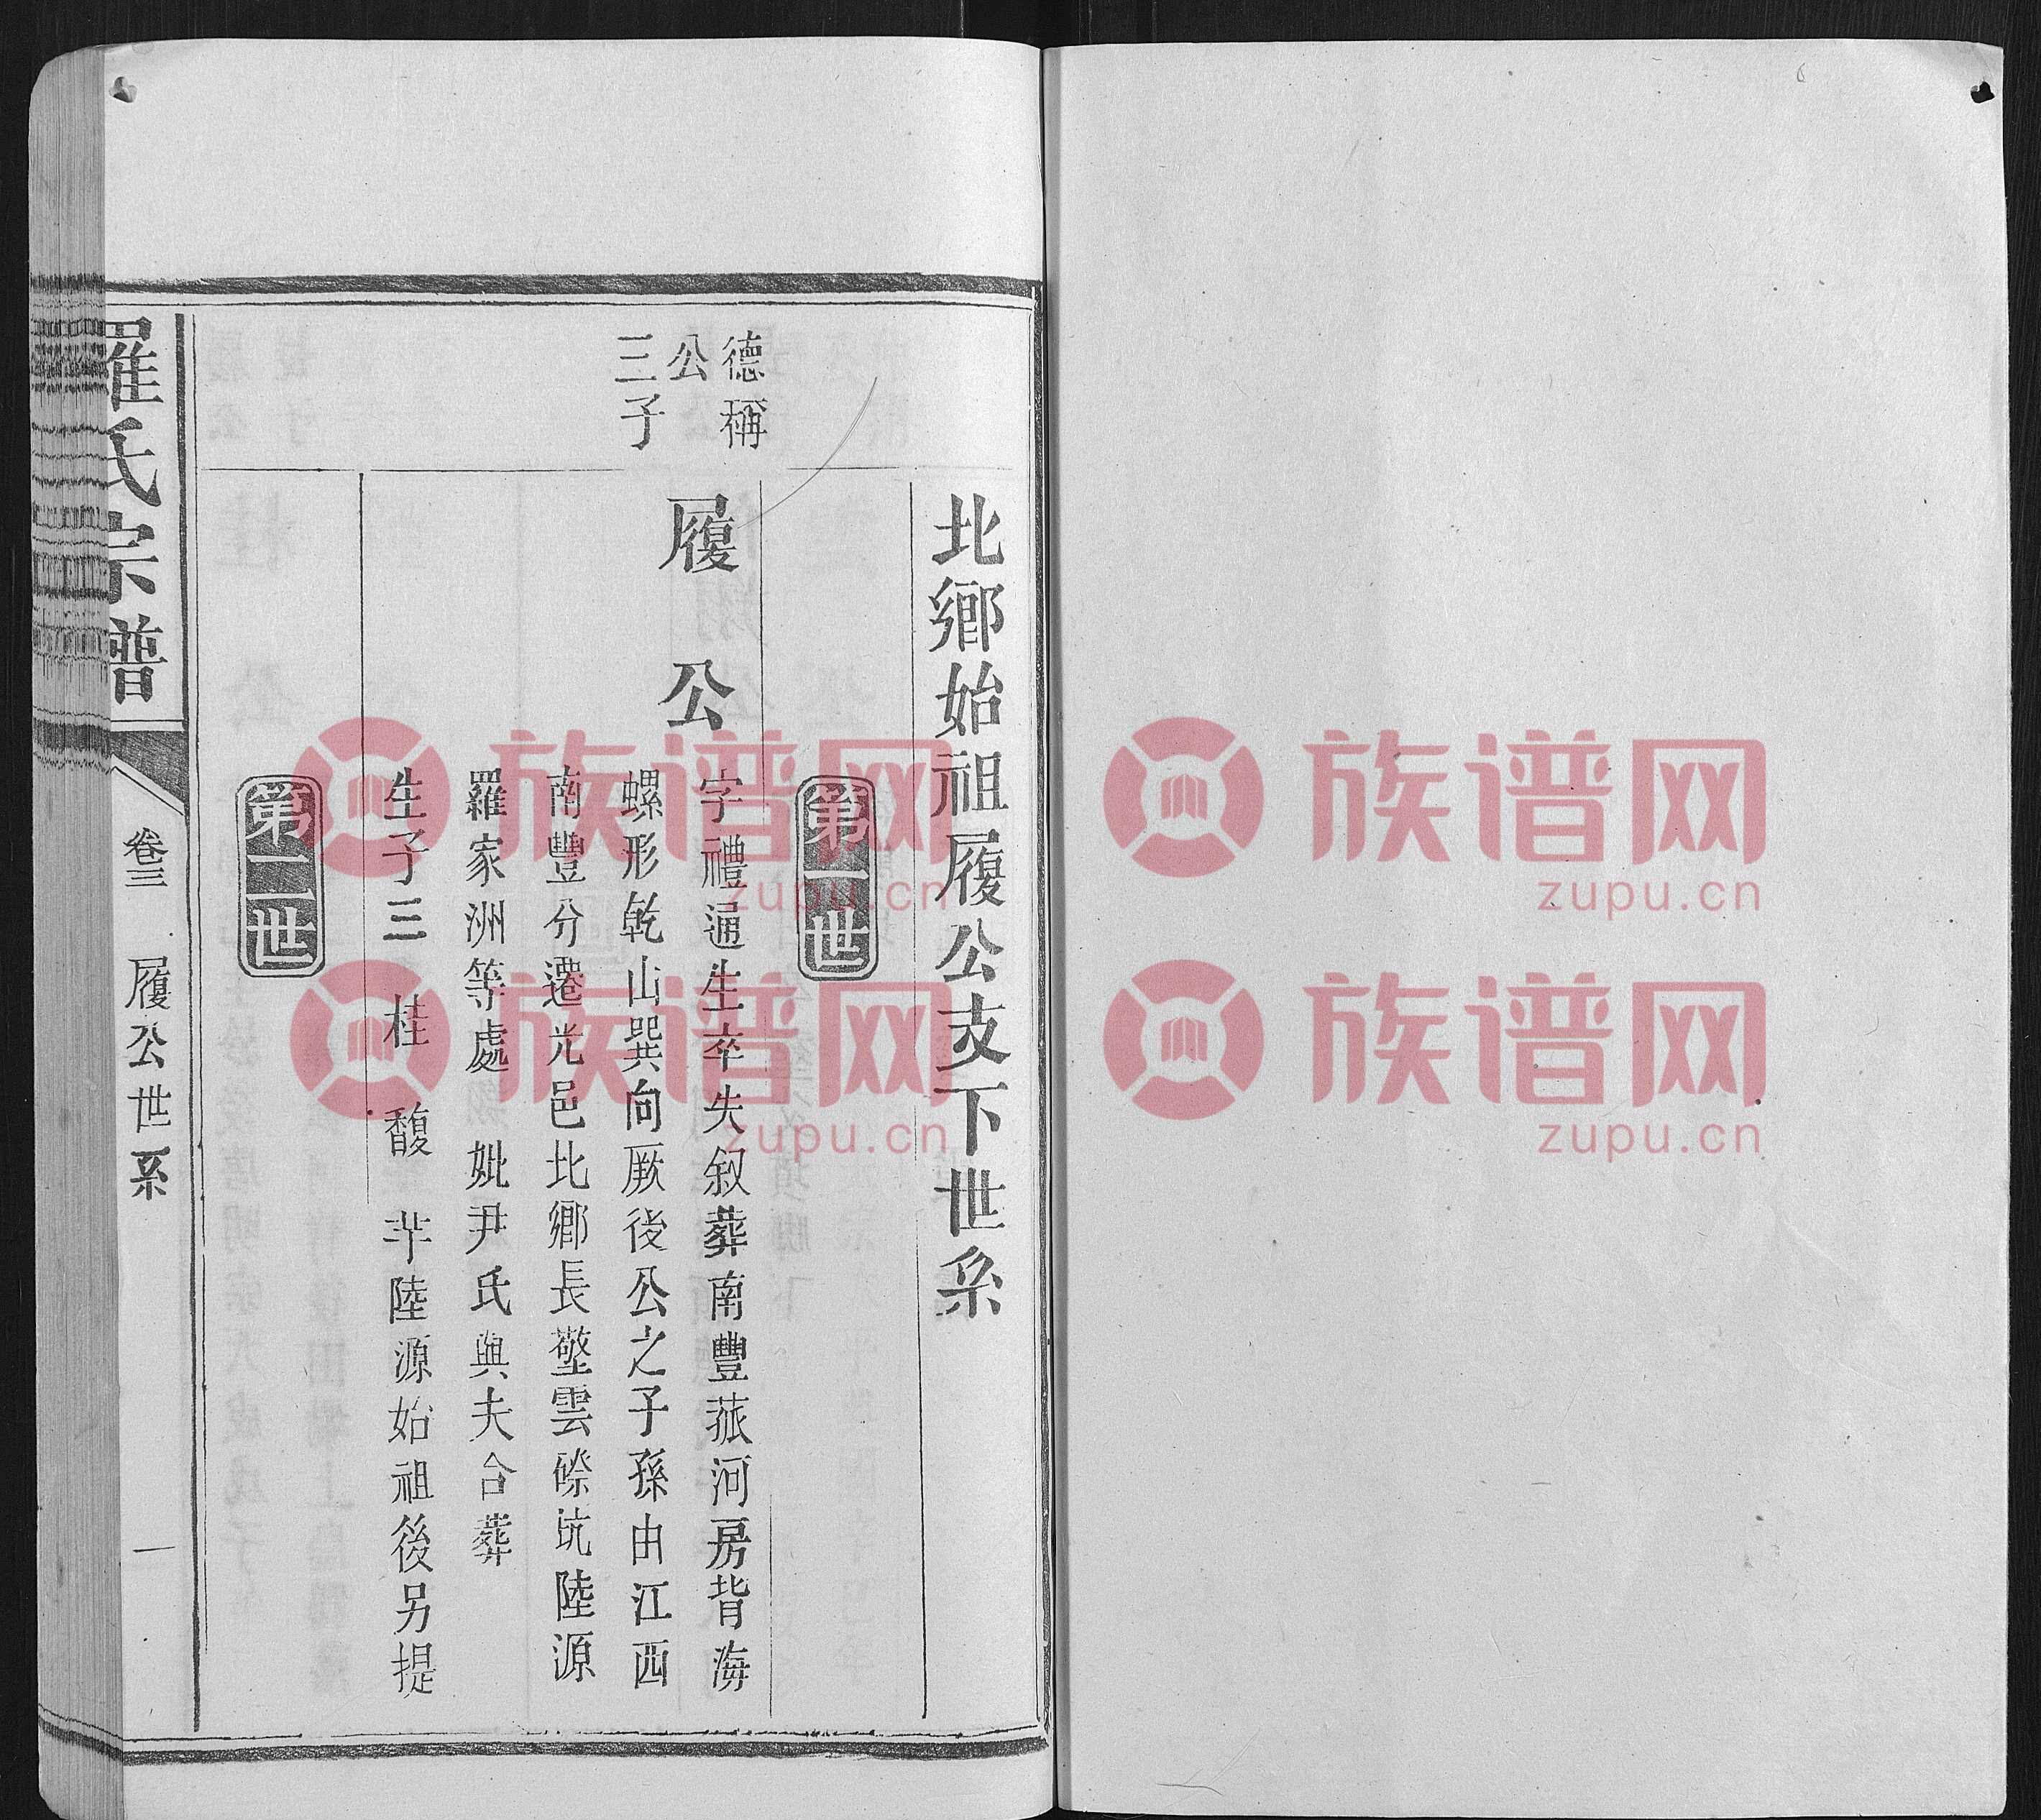 北鄉始祖履公支下世系
第一世
德稱
公
三子
履公
字禮通生卒失叙葬南豐菰河房背海
螺形乾山巽向厥後公之子孫由江西
南豐分遷光邑北鄉長壂雲磜坑陸源
羅家洲等處 妣尹氏與夫合葬
生子三 桂 馥 芈陸源始祖後另提
第二世
羅氏宗譜
卷三 履公世系 一
族谱网
zupu.cn
族谱网
zupu.cn
族谱网
zupu.cn
族谱网
zupu.cn